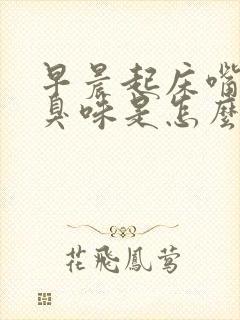 早晨起床嘴
臭味是怎麼
花飛鳳鶯